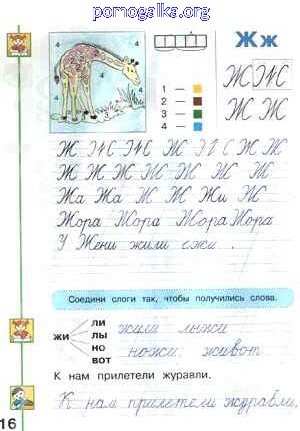 pomogalka.org
Ж ж
4 4
4 4
1 —
2 —
3 —
4 —
Ж Ж
Ж Ж
Ж Ж Ж Ж Ж Ж Ж Ж
Ж Ж Ж Ж Ж Ж Ж Ж
Жа Жа Ж Ж Жи Ж
Жора Жора Жора Жора
У Жени жили ежи .
Соедини слоги так, чтобы получились слова.
жи
ли
лы
но
вот
жили лыжи
ножи живот
К нам прилетели журавли.
К нам прилетели журавли.
16